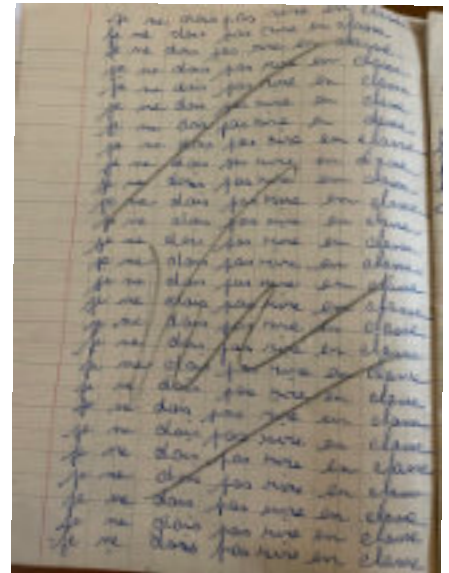 je ne dois pas rire en classe
je ne dois pas rire en classe
je ne dois pas rire en classe
je ne dois pas rire en classe
je ne dois pas rire en classe
je ne dois pas rire en classe
je ne dois pas rire en classe
je ne dois pas rire en classe
je ne dois pas rire en classe
je ne dois pas rire en classe
je ne dois pas rire en classe
je ne dois pas rire en classe
je ne dois pas rire en classe
je ne dois pas rire en classe
je ne dois pas rire en classe
je ne dois pas rire en classe
je ne dois pas rire en classe
je ne dois pas rire en classe
je ne dois pas rire en classe
je ne dois pas rire en classe
je ne dois pas rire en classe
je ne dois pas rire en classe
je ne dois pas rire en classe
je ne dois pas rire en classe
je ne dois pas rire en classe
je ne dois pas rire en classe
je ne dois pas rire en classe